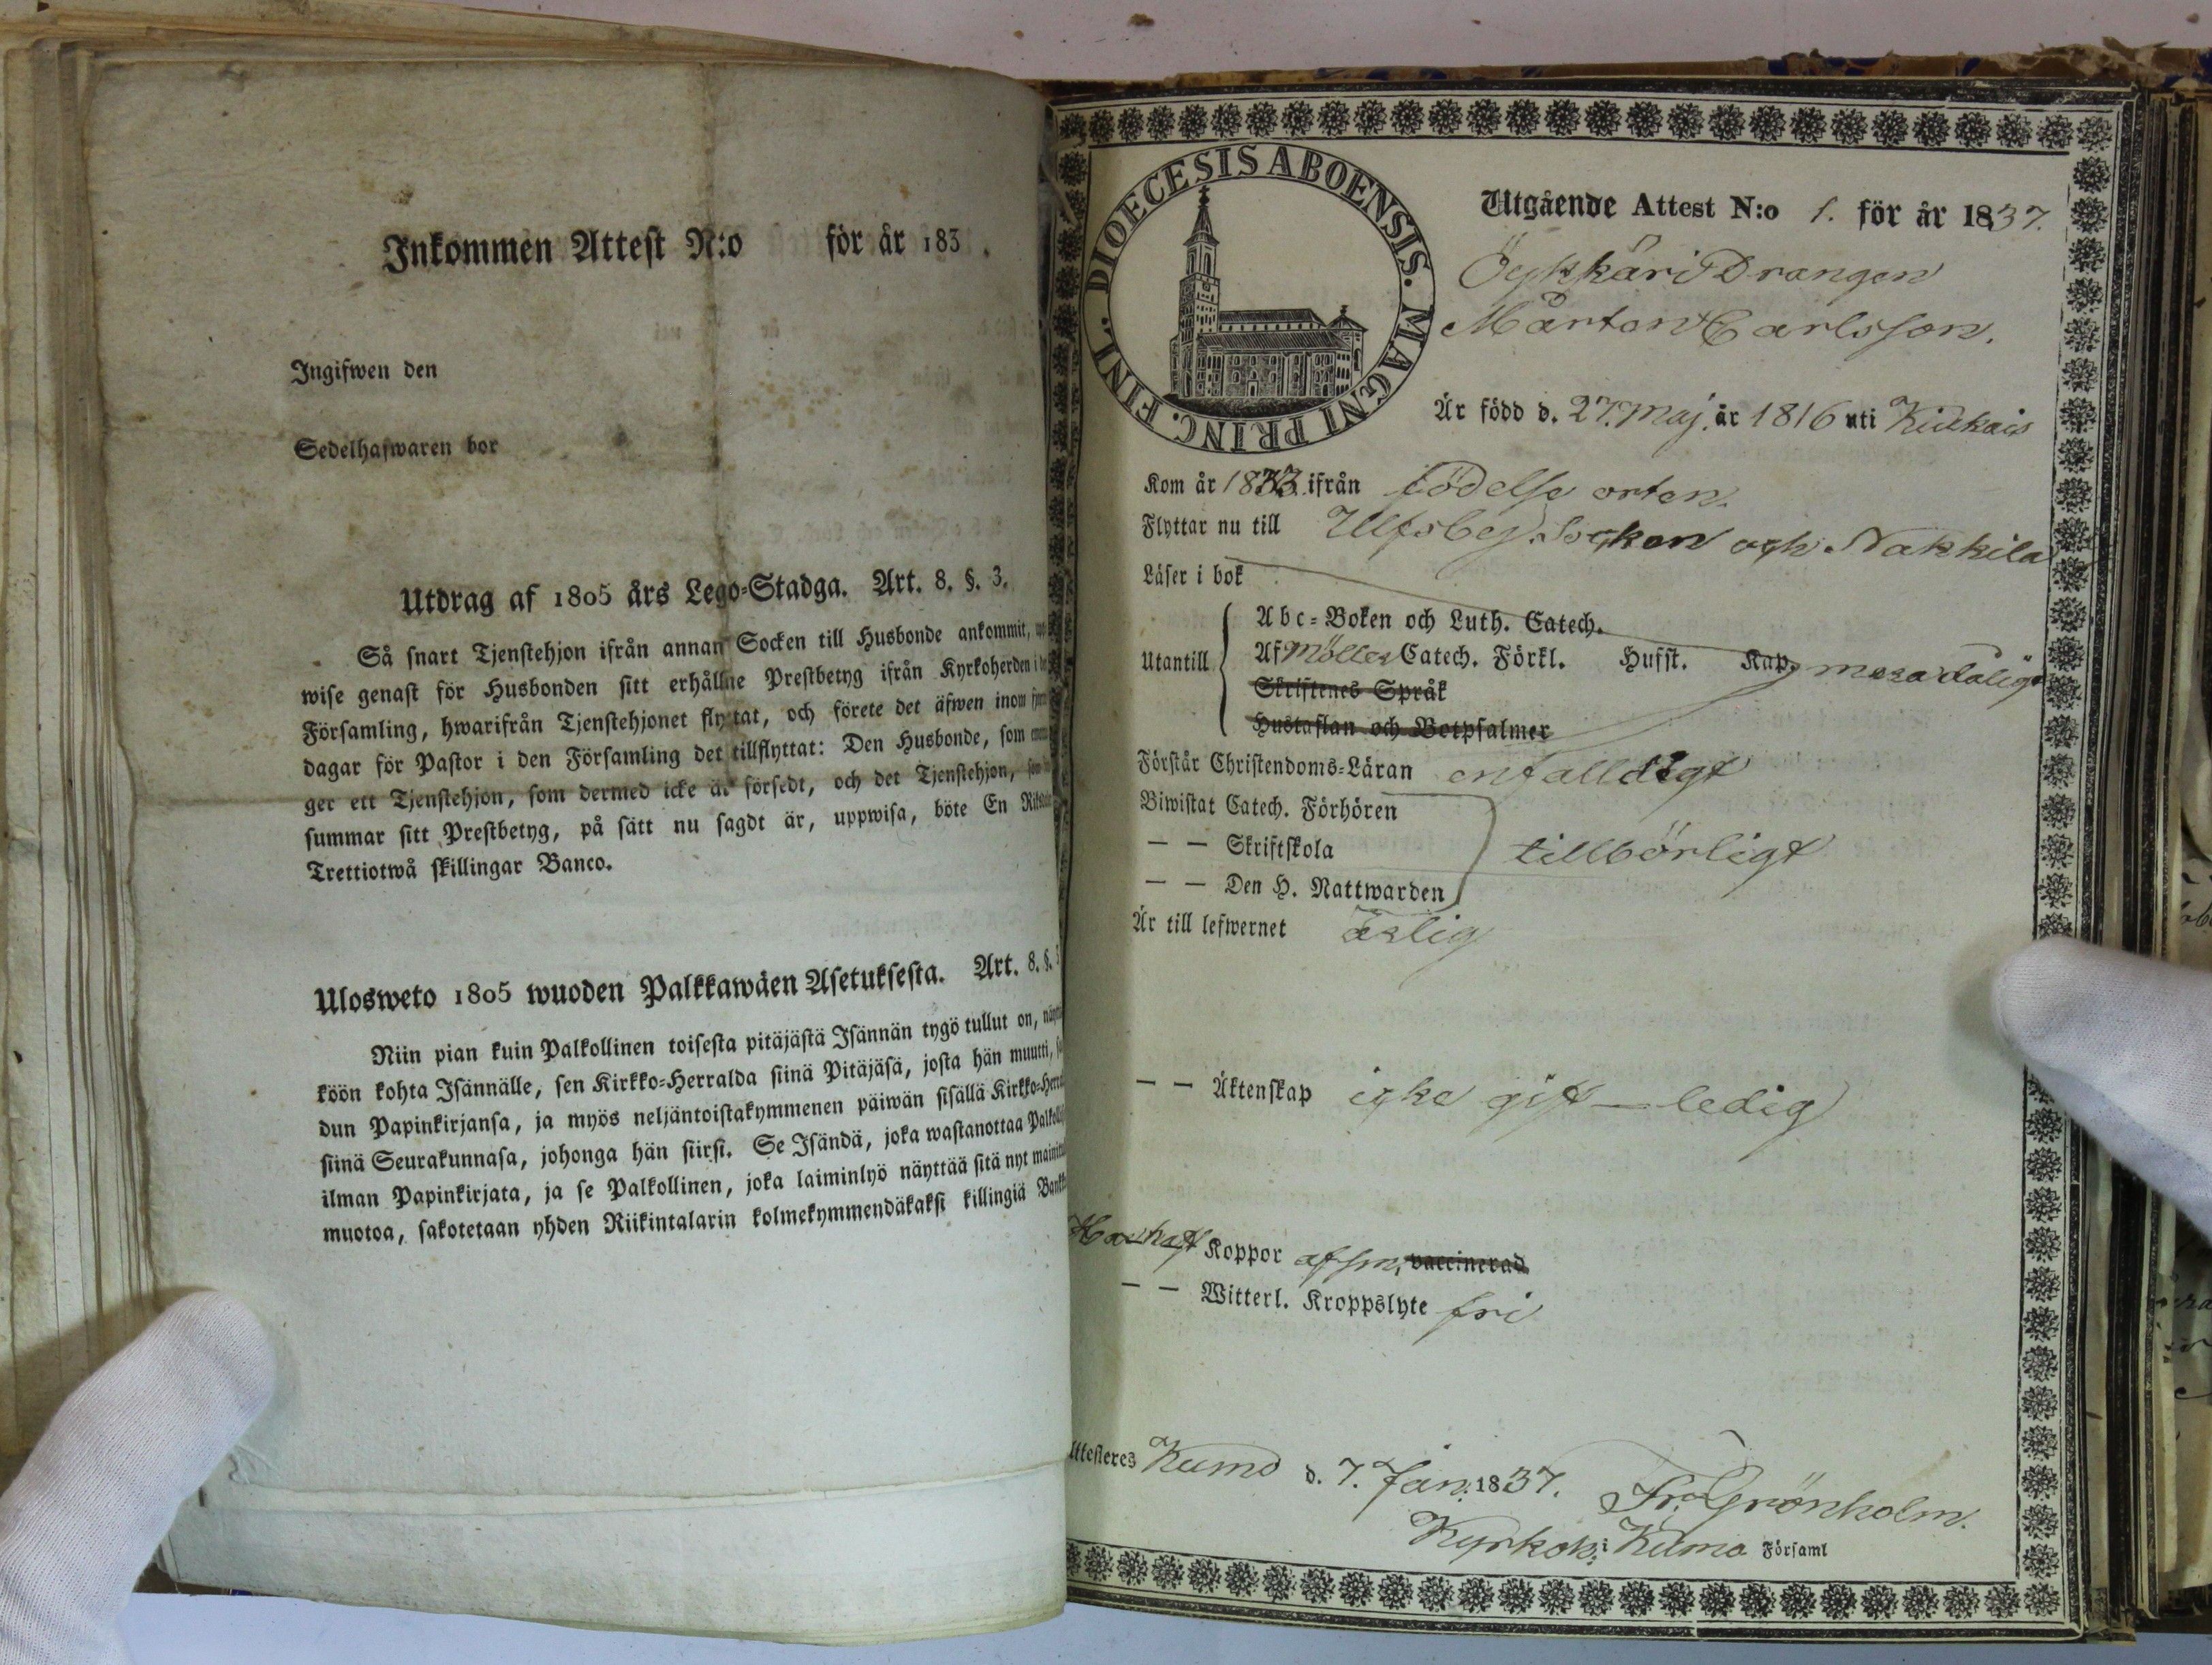 Inkommen Attest N:o för år 183 .
Ingifwen den
Sedelhafwaren bor
Utdrag af 1805 års Lego-Stadga. Art. 8. §. 3.
Så snart Tjenstehjon ifrån annan Socken till Husbonde ankommit,
wise genast för Husbonden sitt erhållne Prestbetyg ifrån Kyrkoherden i
Församling, hwarifrån Tjenstehjonet flyttat, och förete det äfwen inom
dagar för Pastor i den Församling det tillflyttat: Den Husbonde, som
ger ett Tjenstehjon, som dermed icke är försedt, och det Tjenstehjon,
summar sitt Prestbetyg, på sätt nu sagdt är, uppwisa, böte En
Trettiotwå skillingar Banco.
Ulosweto 1805 wuoden Palkkawäen Asetuksesta. Art. 8. §.
Niin pian kuin Palkollinen toisesta pitäjästä Isännän tygö tullut on,
köön kohta Isännälle, sen Kirkko-Herralda siinä Pitäjäsä, josta hän muutti,
dun Papinkirjansa, ja myös neljäntoistakymmenen päiwän sisällä
siinä Seurakunnasa, johonga hän siirsi. Se Isändä, joka wastanottaa
ilman Papinkirjata, ja se Palkollinen, joka laiminlyö näyttää sitä nyt
muotoa, sakotetaan yhden Riikintalarin kolmekymmendäkaksi killingiä
DIOECESIS ABOENSIS. MAGNI PRINC. FINL.
Utgående Attest N:o 1. för år 1837.
Öykkäri Drangen
Mårten Carlsson.
Är född d. 27. Maj. år 1816 uti Kiukais
Kom år 1833. ifrån födelse orten.
Flyttar nu till Ulfsby Socken och Nakkila
Läser i bok
Abc-Boken och Luth. Catech.
Utantill Af Möllers Catech. Förkl. Husst. Kap. mera dåligt
Skriftenes Språk
Hustaflan och Botpsalmer
Förstår Christendoms-Läran enfalldigt
Biwistat Catech. Förhören
— — Skriftskola tillbörligt
— — Den H. Nattwarden
Är till lefwernet ärlig
— — Äktenskap icke gift — ledig
Har haft Koppor vaccinerad
— — Witterl. Kroppslyte fri
Attesteres Kumo d. 7. Jan. 1837. Fr. Grönholm.
Kyrkoh. i Kumo Församl